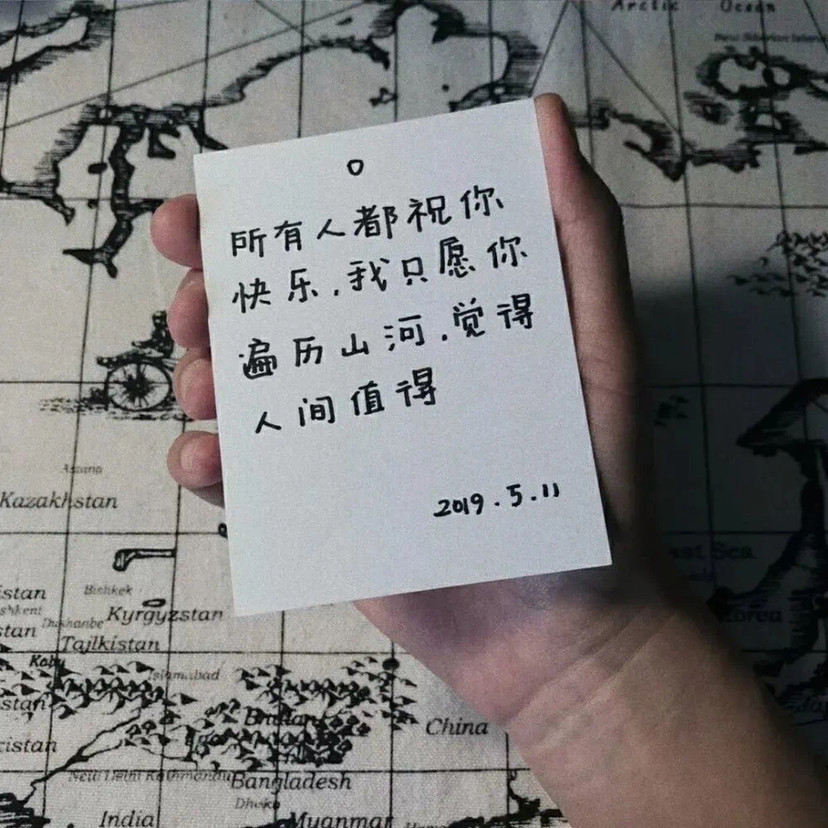 Arctic Ocean
所有人都祝你
快乐,我只愿你
遍历山河,觉得
人间值得
2019.5.11
Astana
Kazakhstan
Bishkek
Kyrgyzstan
Dushanbe
Tajikistan
Islamabad
Bhutan
China
New Delhi Kathmandu
Bangladesh
Dhaka
India
Myanmar
East Sea
Korea